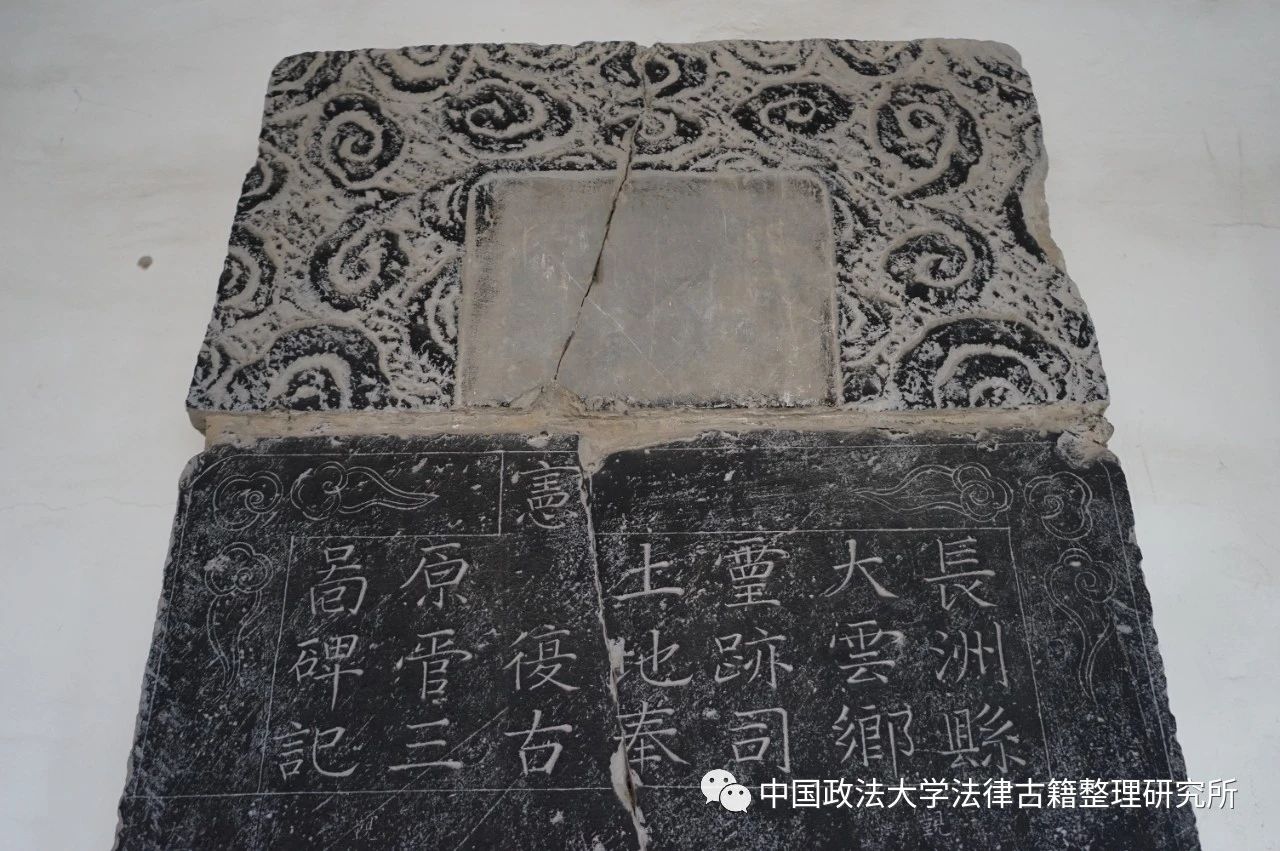 長洲縣
大雲鄉
靈跡司
土地奉
憲復古
原管三
啚碑記
中国政法大学法律古籍整理研究所